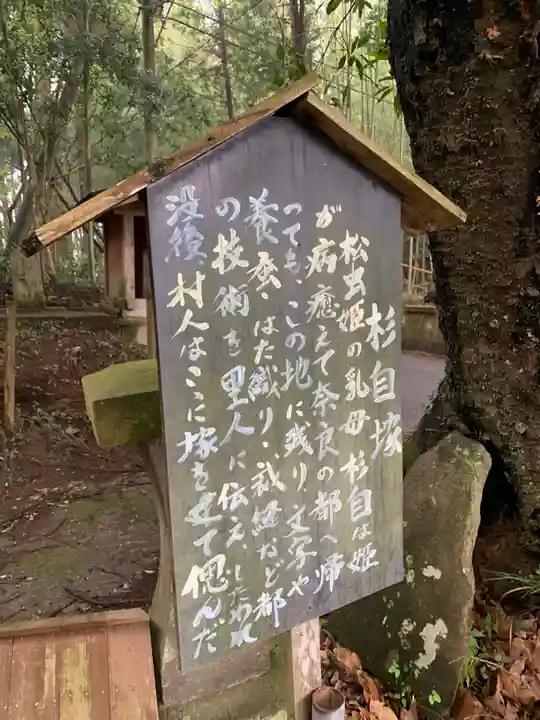 杉自塚
松虫姫の乳母杉自は姫
が病癒えて奈良の都へ帰
っても、この地に残り文字や
養蚕、はた織り、裁縫など都
の技術を里人に伝え、したわれ
没後村人はここに塚を建て偲んだ